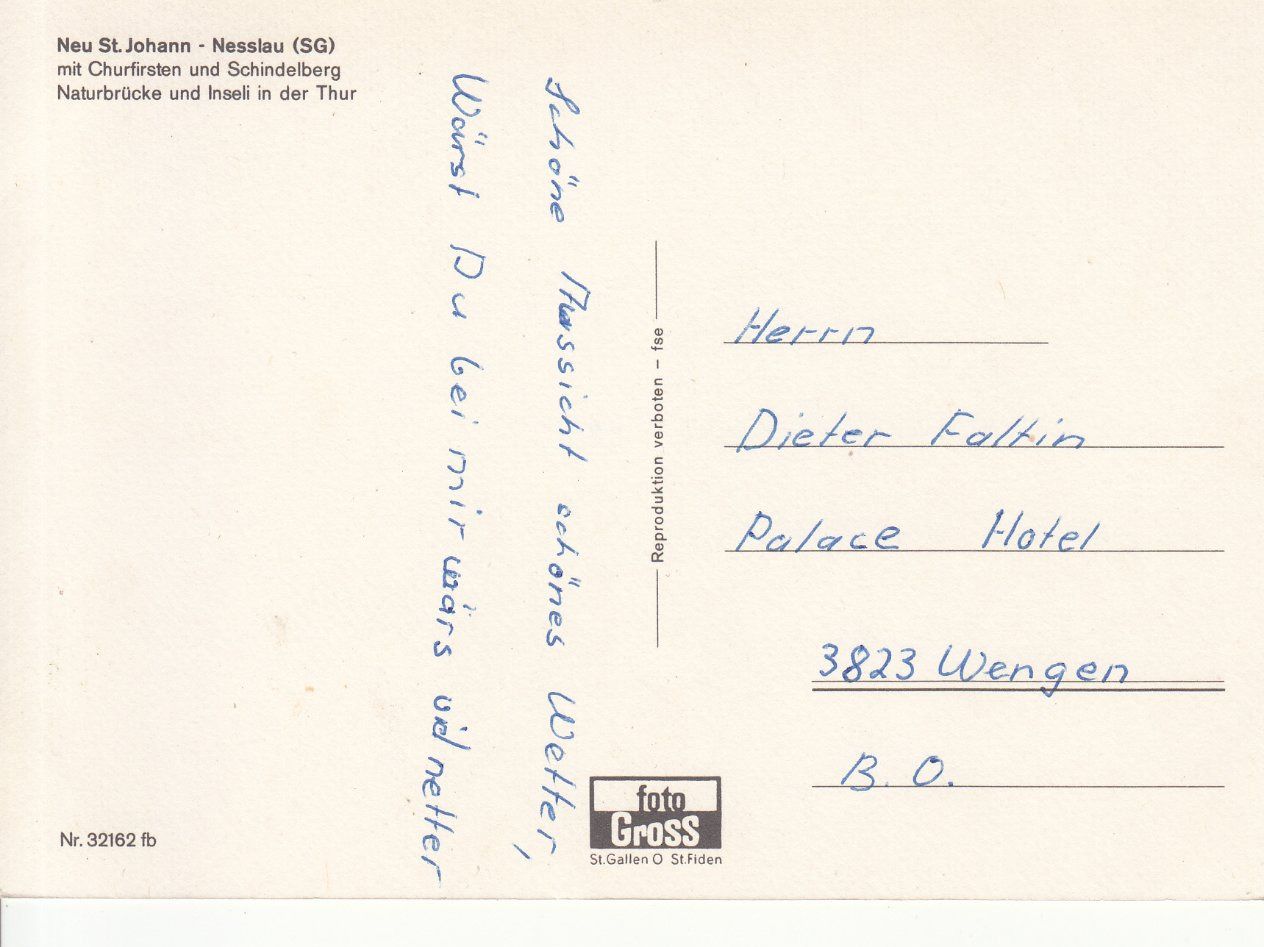 Neu St. Johann - Nesslau (SG)
mit Churfirsten und Schindelberg
Naturbrücke und Inseli in der Thur
Schöne Aussicht schönes Wetter,
Wärst Du bei mir wärs viel netter
Reproduktion verboten – fse
Herrn
Dieter Faltin
Palace Hotel
3823 Wengen
B. O.
Nr. 32162 fb
foto
Gross
St.Gallen O St.Fiden